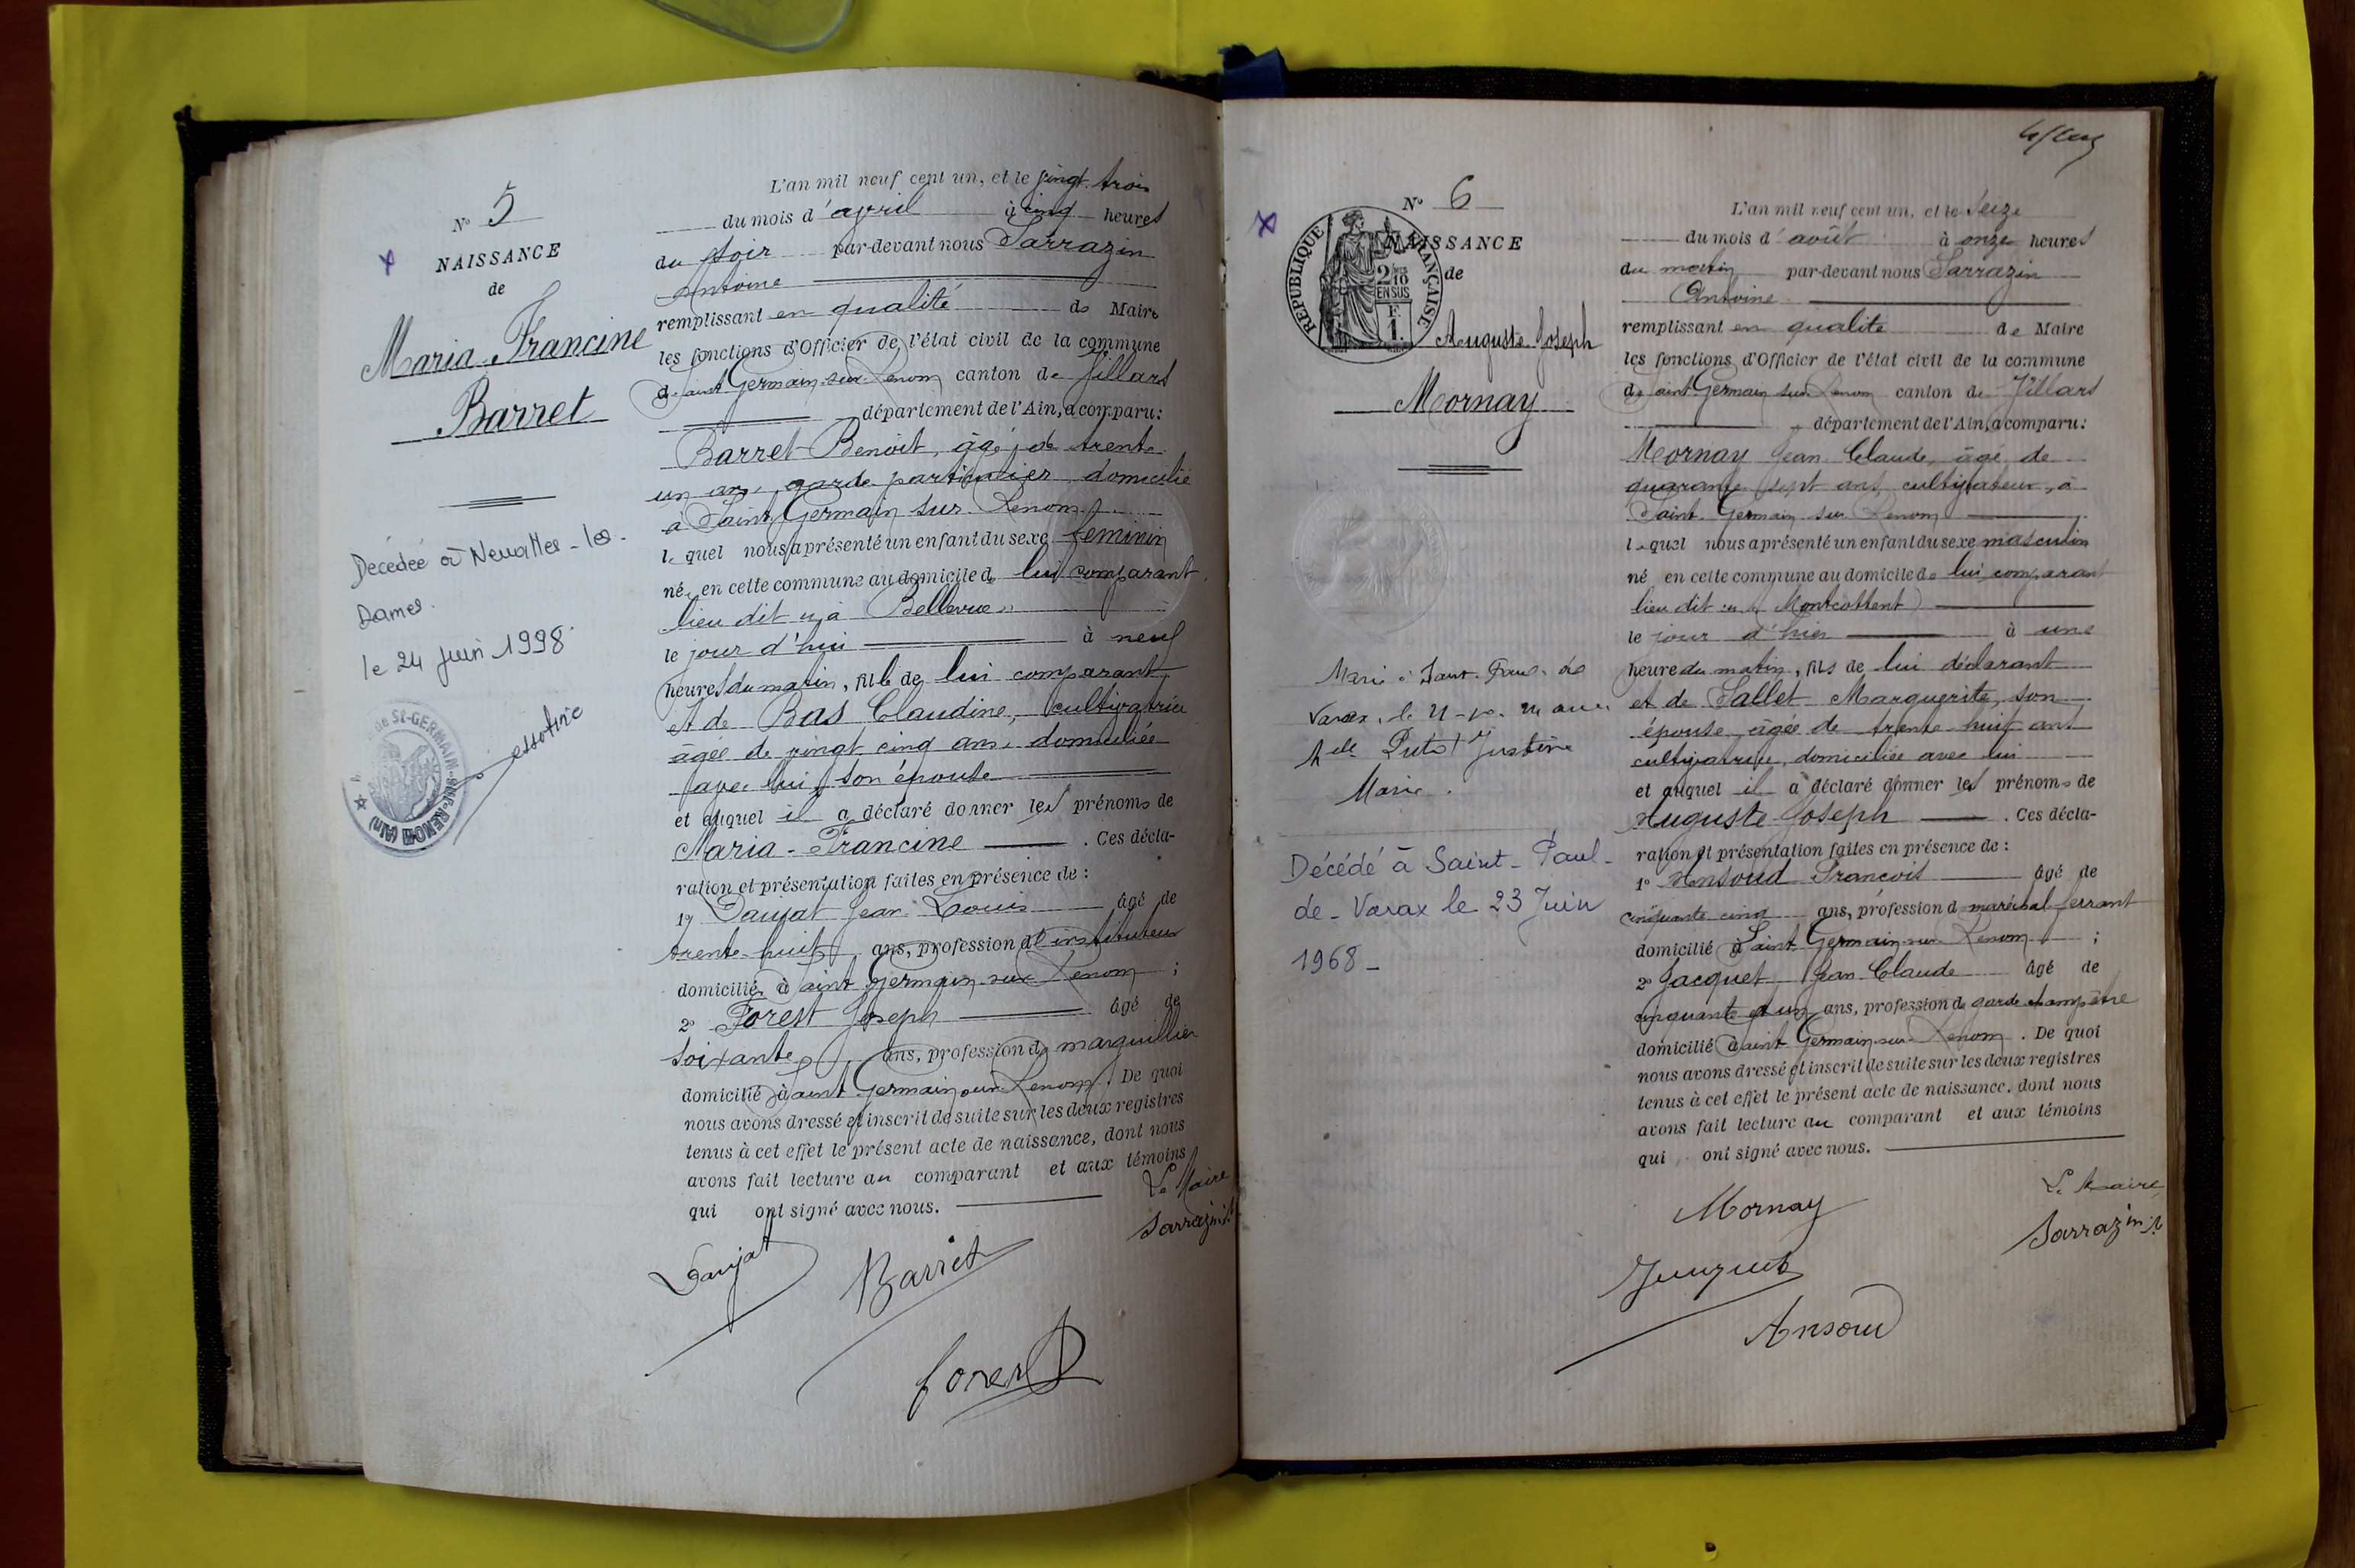 N° 5
NAISSANCE
de
Maria-Francine
Barret
Décédée à Neuville-les-
Dames
le 24 juin 1998
DE ST-GERMAIN-SUR-RENOM (AIN)
L'an mil neuf cent un, et le vingt-trois
du mois d'avril à cinq heures
du soir par-devant nous Sarrazin
Antoine
remplissant en qualité de Maire
les fonctions d'Officier de l'état civil de la commune
de Saint Germain-sur-Renom canton de Villars
département de l'Ain, a comparu:
Barret Benoit, âgé de trente
un ans, garde particulier domicilié
à Saint Germain sur Renom
lequel nous a présenté un enfant du sexe féminin
née en cette commune au domicile de lui comparant
lieu dit « à Bellevue »
le jour d'hui à neuf
heures du matin, fille de lui comparant
et de Bas Claudine, cultivatrice
âgée de vingt cinq ans, domiciliée
avec lui, son épouse
et auquel il a déclaré donner les prénoms de
Maria-Francine . Ces décla-
ration et présentation faites en présence de :
1° Daujat Jean Louis âgé de
trente-huit ans, profession d'instituteur
domicilié à Saint Germain-sur-Renom ;
2° Forest Joseph âgé de
soixante ans, profession de marguillier
domicilié à Saint Germain-sur-Renom. De quoi
nous avons dressé et inscrit de suite sur les deux registres
tenus à cet effet le présent acte de naissance, dont nous
avons fait lecture au comparant et aux témoins
qui ont signé avec nous.
Le Maire
Sarrazin
Daujat Barret
forest
N° 6
NAISSANCE
de
RÉPUBLIQUE FRANÇAISE
2/10
EN SUS
F.
1.
Auguste-Joseph
Mornay
Marié à Saint-Paul-de
Varax, le
Putot Justine
Marie.
Décédé à Saint-Paul-
de-Varax le 23 Juin
1968-
L'an mil neuf cent un, et le seize
du mois d'août à onze heures
du matin par-devant nous Sarrazin
Antoine
remplissant en qualité de Maire
les fonctions d'Officier de l'état civil de la commune
de Saint Germain sur Renom canton de Villars
département de l'Ain, a comparu:
Mornay Jean Claude, âgé de
quarante sept ans, cultivateur, à
Saint-Germain sur Renom
lequel nous a présenté un enfant du sexe masculin
né en cette commune au domicile de lui comparant
lieu dit
le jour d'hier à une
heure du matin, fils de lui déclarant
et de Sallet Marguerite, son
épouse, âgée de trente-huit ans
cultivatrice, domiciliée avec lui
et auquel il a déclaré donner les prénoms de
Auguste-Joseph . Ces décla-
ration et présentation faites en présence de :
1° Ansoud François âgé de
cinquante cinq ans, profession de maréchal-ferrant
domicilié à Saint Germain-sur-Renom ;
2° Jacquet Jean Claude âgé de
cinquante et un ans, profession de garde champêtre
domicilié à Saint Germain-sur-Renom . De quoi
nous avons dressé et inscrit de suite sur les deux registres
tenus à cet effet le présent acte de naissance, dont nous
avons fait lecture au comparant et aux témoins
qui ont signé avec nous.
Mornay
Le Maire
Sarrazin
Jacquet
Ansoud